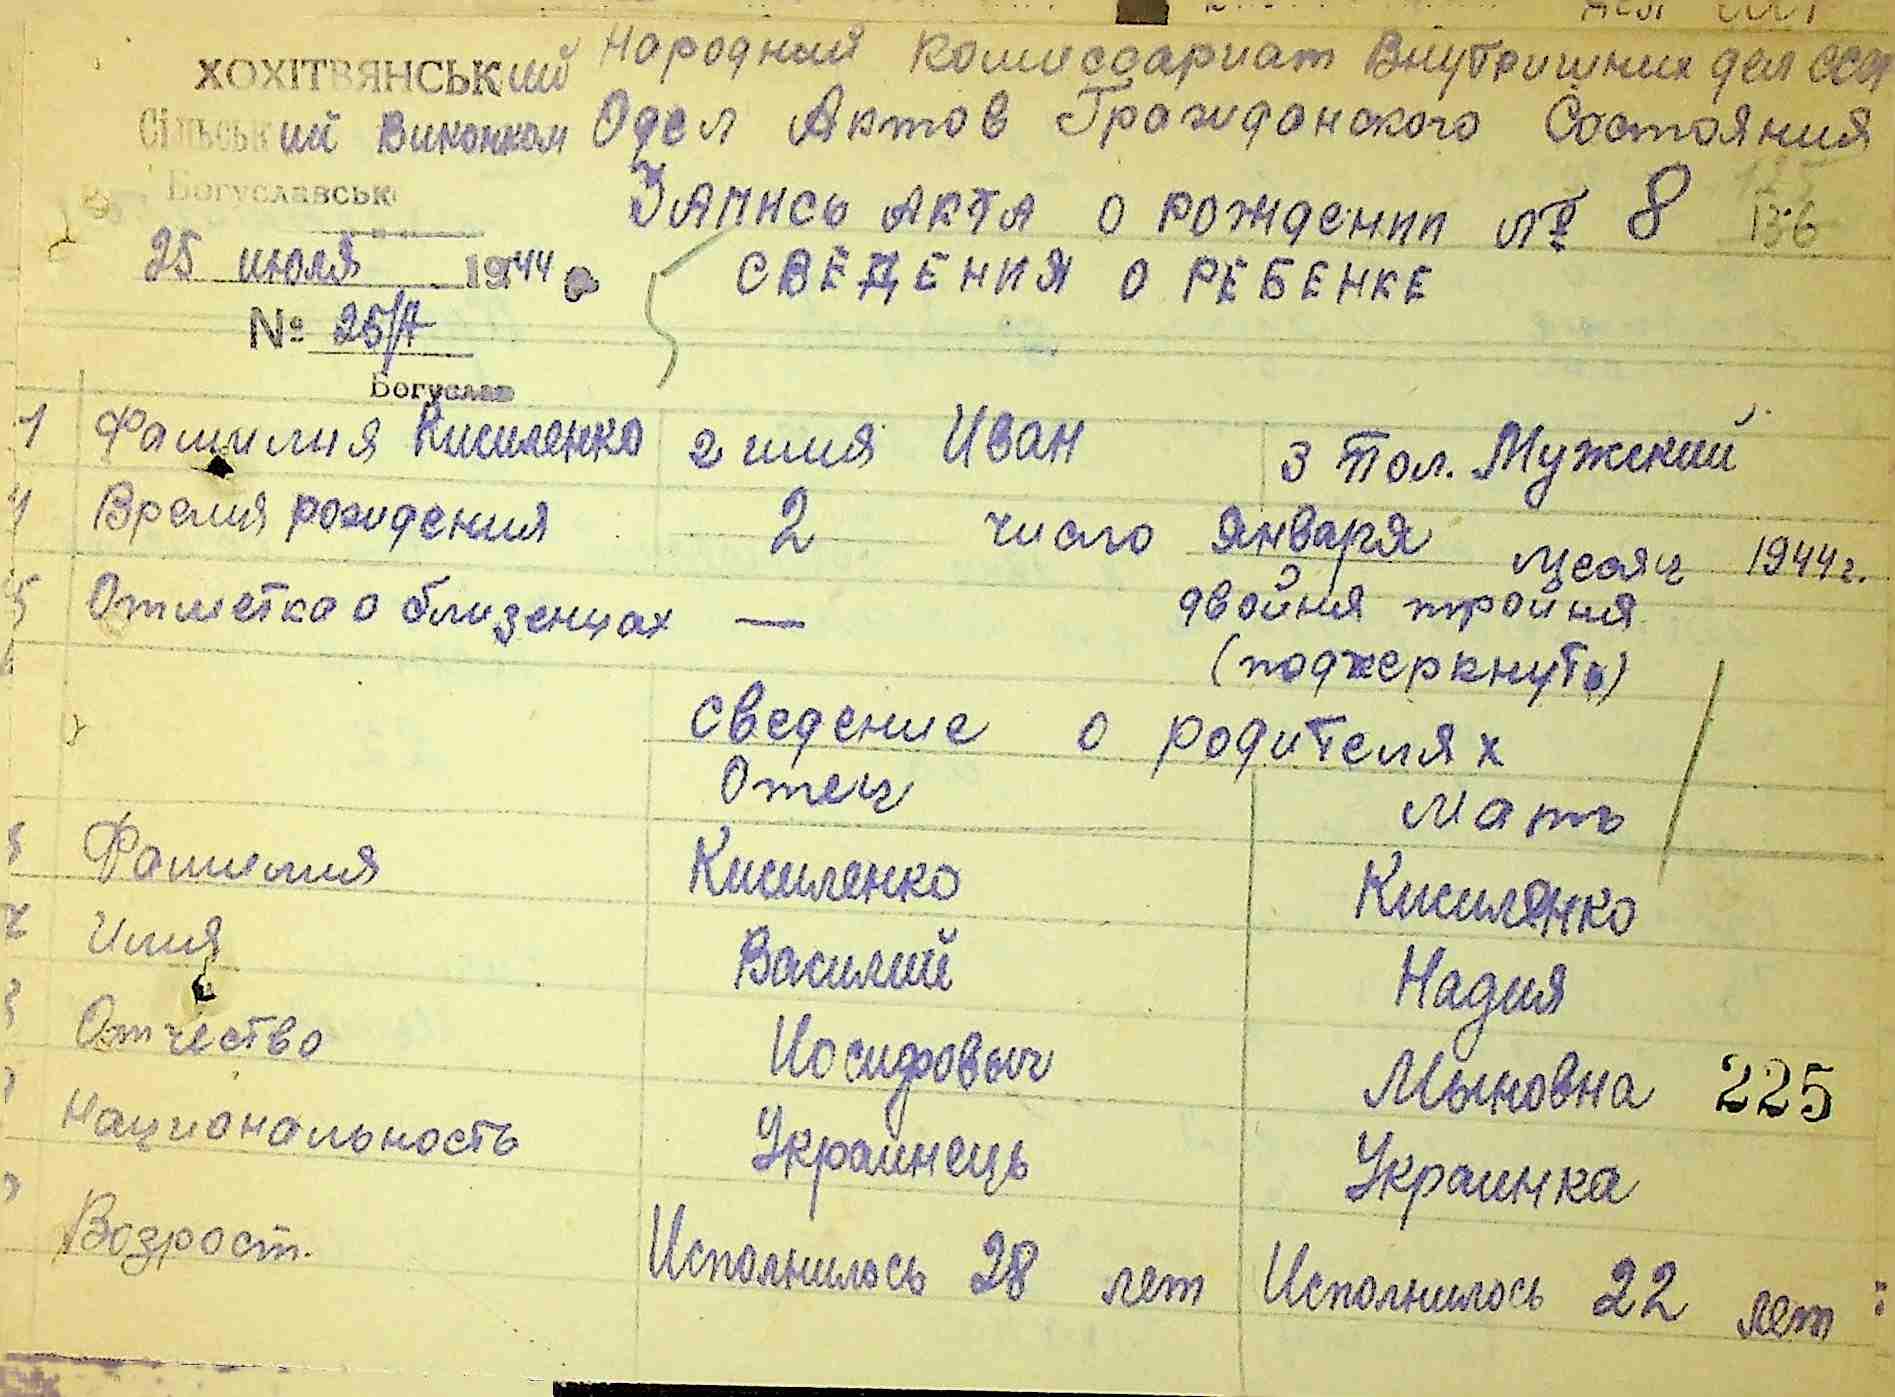 ХОХІТВЯНСЬКИЙ Народний Комиссариат Внутришних дел ССР
Сільський Виконком Одел Актов Гражданского Состояния
Богуславськ
Запись акта о рождении № 8
25 июля 1944
Сведения о ребенке
№ 25/А
Богуслав
1 Фамилия Кисиленко 2 имя Иван 3 Пол. Мужский
4 Время рождения 2 число Января месяц 1944 г.
5 Отметка о близенцах — двойня тройня
(подчеркнуть)
сведение о родителях
Отец Мать
Фамилия Кисиленко Кисиленко
Имя Василий Надия
Отчество Иосифовыч Мыновна 225
Национальность Украинець Украинка
Возраст. Исполнилось 28 лет Исполнилось 22 лет